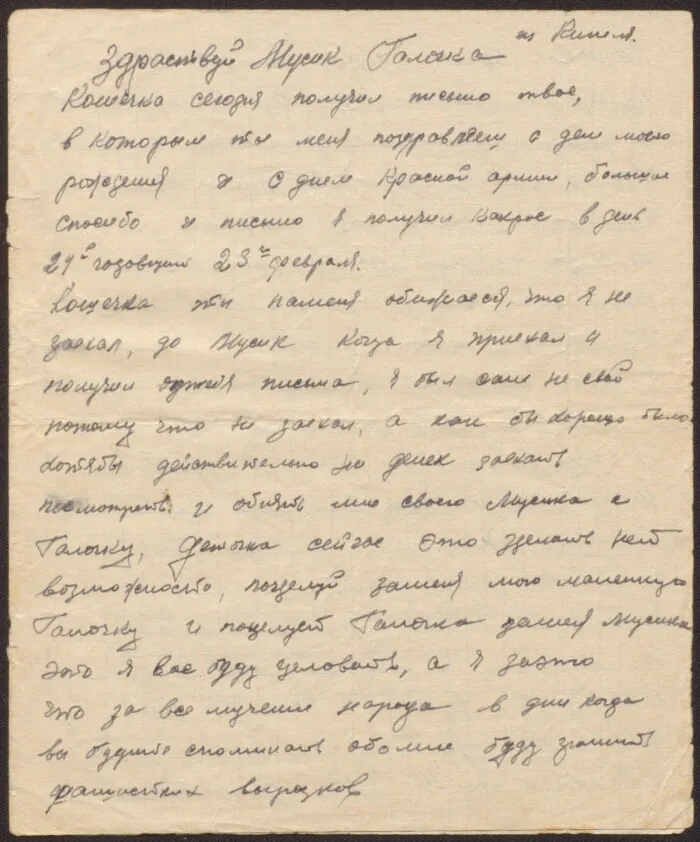 из Кинеля.
Здраствуй Мусик Галочка
Кошечка сегодня получил письмо твое,
в котором ты меня поздравляеш с дем моего
рождения и с днем Красной армии, большое
спосибо и письмо я получил какрос в день
24й годовщины 23го февраля.
Кошечка ты наменя обижаеся, что я не
заехал, до Мусик когда я приехал и
получил письма, я был сам не свой
потому что не заехал, а как бы хорошо было
хотябы действительно но денек заехать
посмотреть и обнять мне своего Мусика и
Галочку, Деточка сейчас это зделать нет
возможности, поцелуй заменя мою маленкую
Галочку и поцелует Галочка заменя Мусика
это я вас буду целовать, а я заэто
что за все мучение народа в дни когда
вы будите споминать обомне буду громить
фашистких вырозков